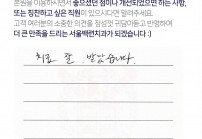 본원을 이용하시면서 좋으셨던 점이나 개선되었으면 하는 사항,
또는 칭찬하고 싶은 직원이 있으시다면 알려주세요.
고객 여러분의 소중한 의견을 정성껏 귀담아듣고 반영하여
더 큰 만족을 드리는 서울백련치과가 되겠습니다 :)
치료 잘 받았습니다.